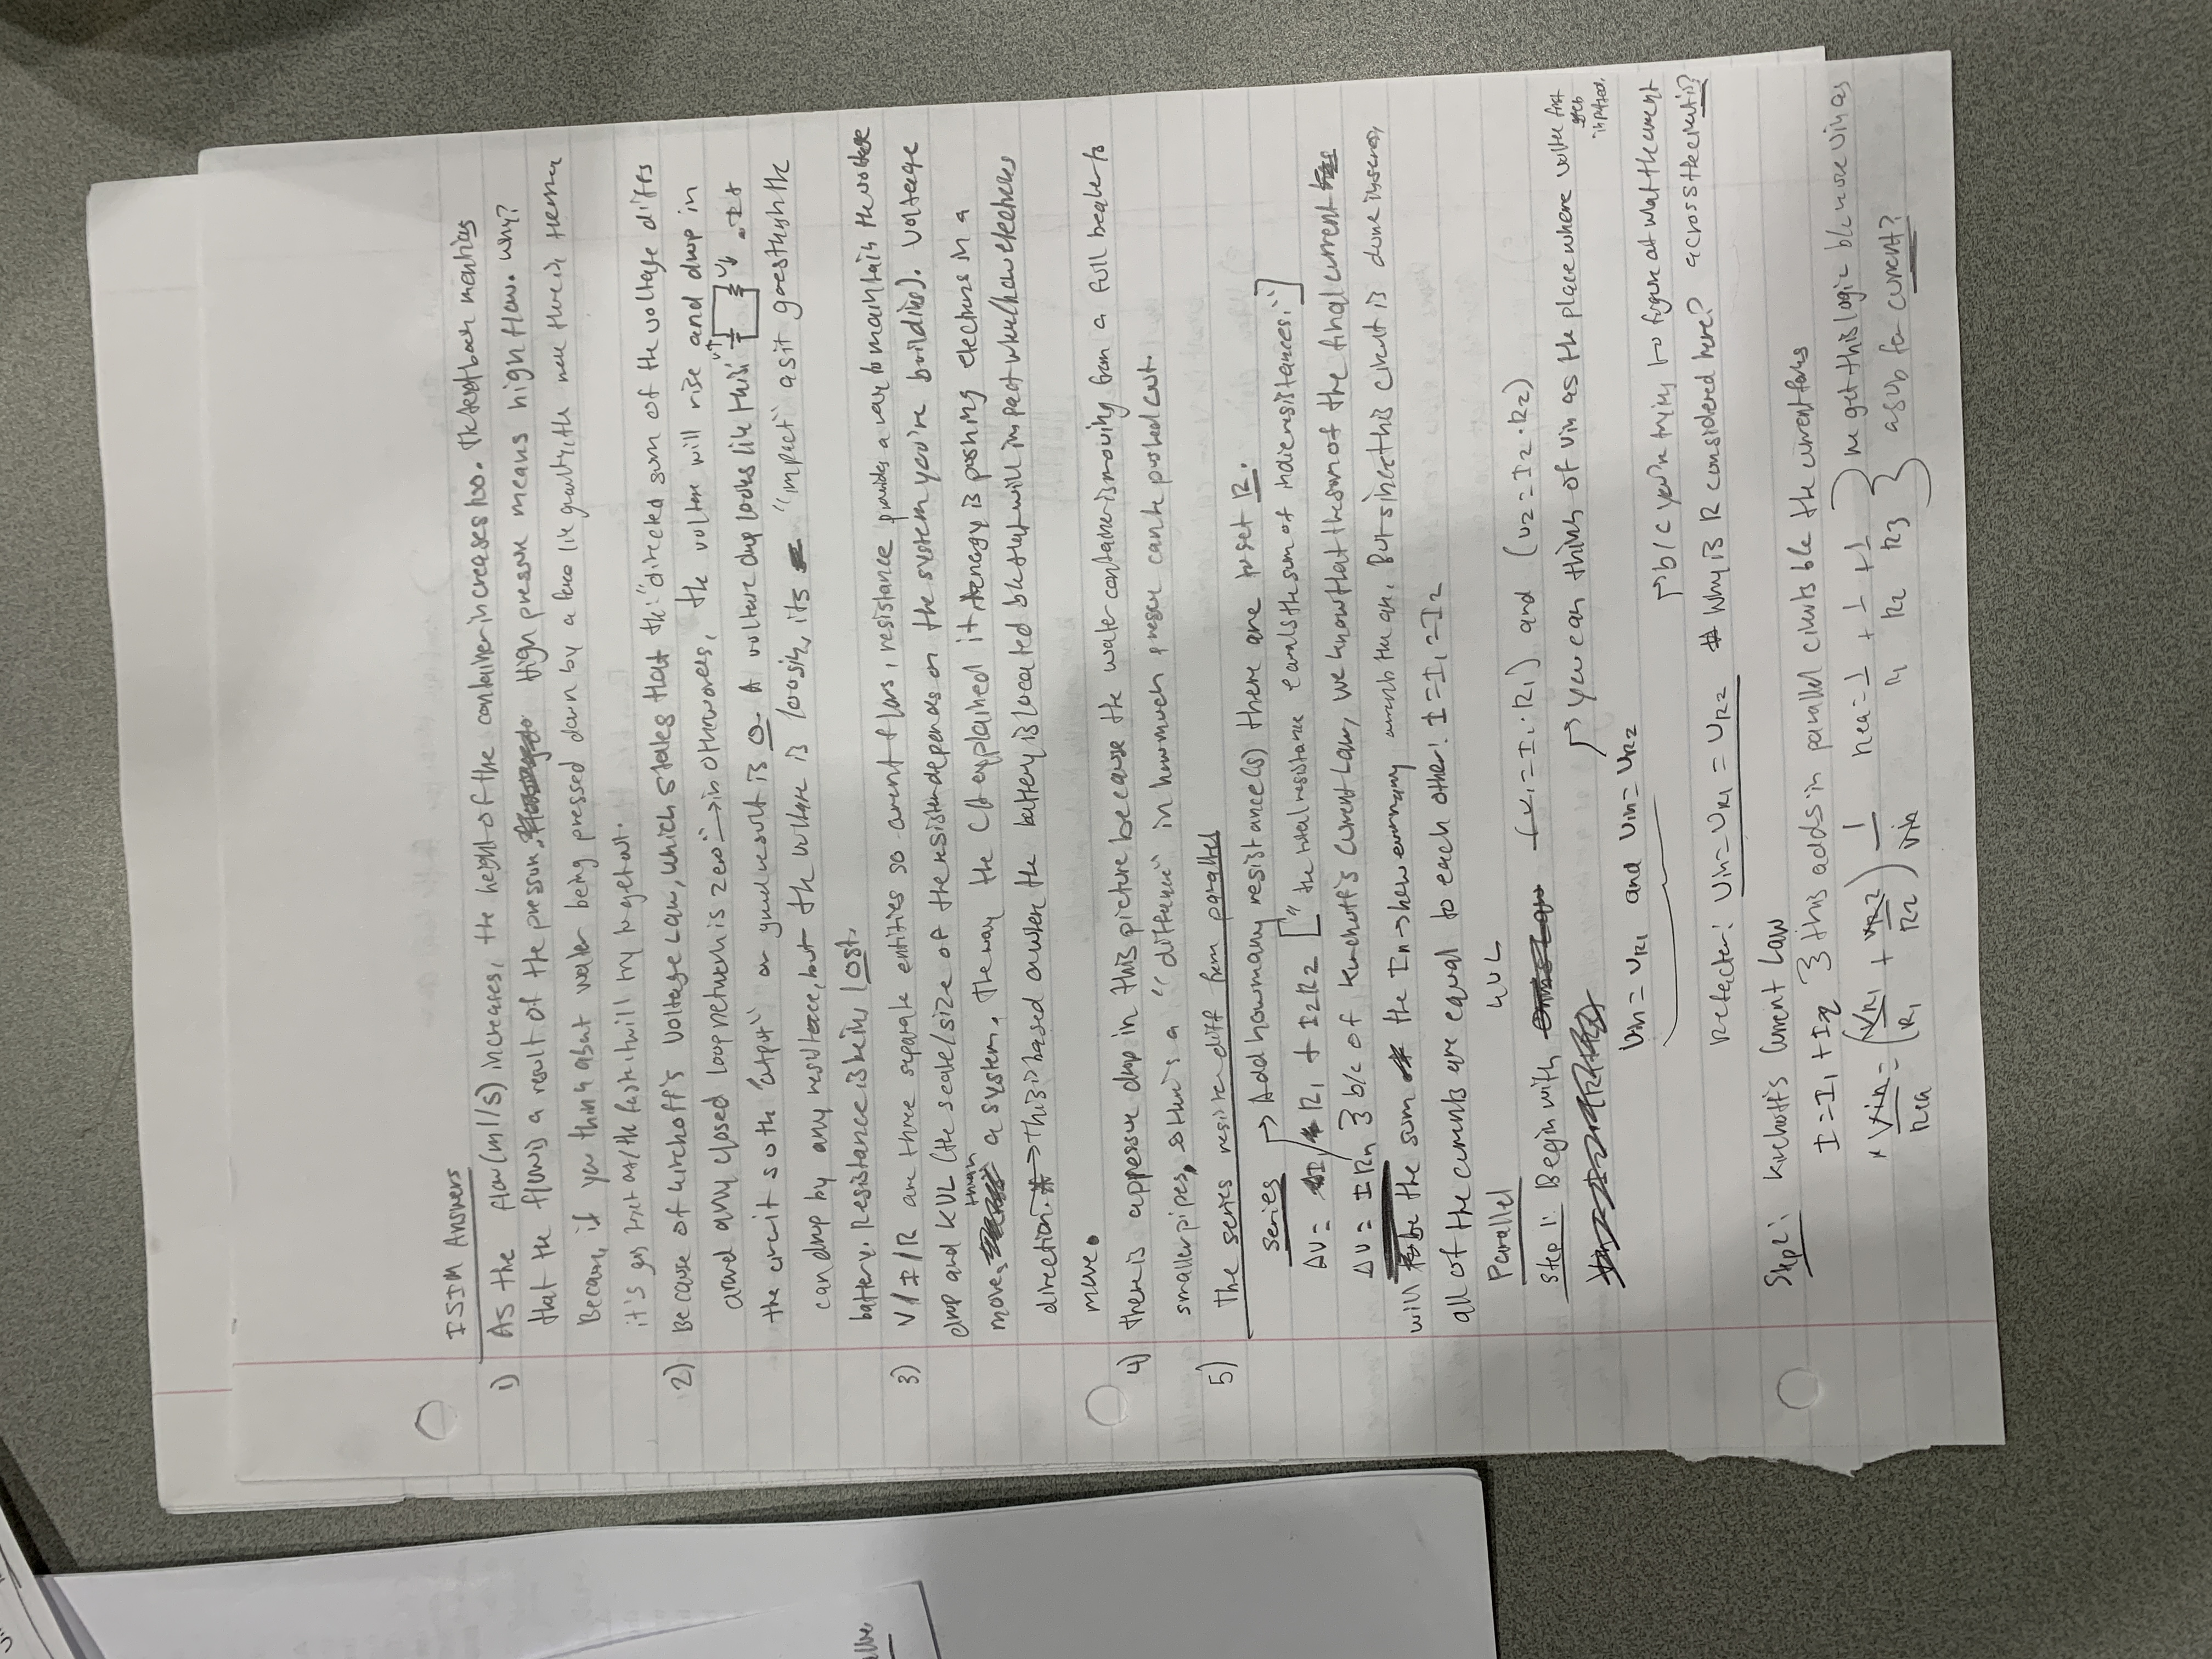 ISIM Answers
1) As the flow (ml/s) increases, the height of the container increases too. The textbook mentions
that the flow is a result of the pressure. High pressure means high flow. Why?
Because, if you think about water being pressed down by a force like gravity, the more there is
it's try to get out.
2) Because of Kirchoff's Voltage Law, which states that the: "directed sum of the voltage diffs
around any closed loop network is zero" → in otherwords, the voltage will rise and drop in
the circuit so the "output" or result is 0. A voltage drop looks like this: V↑ V↓ . It
can drop by any resistence, but the voltage is loosing its "impact" as it goes through the
battery. Resistance is being lost.
3) V/I/R are three separate entities so current flows, resistance provides a way to maintain the voltage
drop and KVL (the scale/size of the resistor depends on the system you're building). Voltage
moves through a system. The way the CA explained it, energy is pushing electrons in a
direction. * → This is based on where the battery is located b/c that will impact where/how electrons
move.
4) there is a pressure drop in this picture because the water container is moving from a full beaker to
smaller pipes, so there's a "difference" in how much pressure can be pushed out.
5) The series resistor diff from parallel
Series → Add how many resistance(s) there are to get R.
ΔV = I1 R1 + I2R2 ["the total resistance equals the sum of indie resistances."]
ΔV = IRn } b/c of Kirchoff's Current Law, we know that the sum of the final current
will be the sum the In → how ever many currents there are. But since this circuit is done in series,
all of the currents are equal to each other! I = I1 = I2
Parallel KVL
Step 1: Begin with (V1 = I1 · R1) and (V2 = I2 · R2)
→ you can think of Vin as the place where voltage first
gets
inputted.
Vin = VR1 and Vin = VR2
→ b/c you're trying to figure out what the current
Refactor: Vin = VR1 = VR2 * Why is R considered here? across the circuit is?
Step 2: Kirchoff's Current Law
I = I1 + I2 } this adds in parallel circuits b/c the current forks
* Vin/Req = (VR1/R1 + VR2/R2) 1/Vin Req = 1/R1 + 1/R2 + 1/R3 } we get this logic b/c we use Vin as
a sub for current?